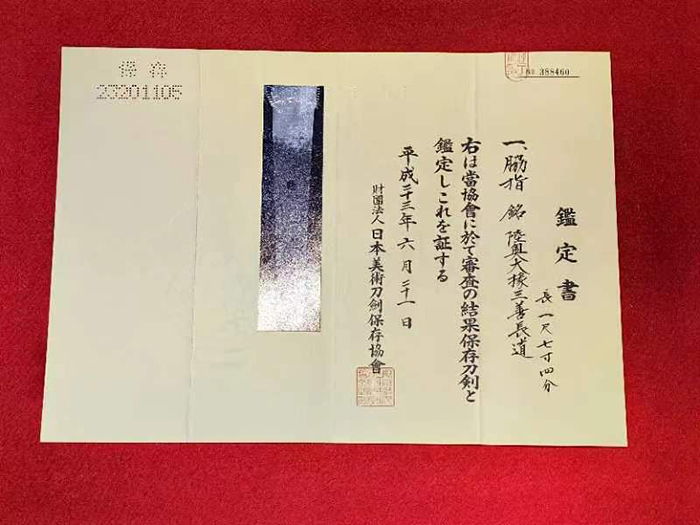 No 388460
鑑定書
一、脇指 銘 陸奥大掾三善長道
長 一尺七寸四分
右は當協會に於て審査の結果保存刀剣と
鑑定しこれを証する
平成二十三年六月二十一日
財團法人 日本美術刀剣保存協會
保存
23201105